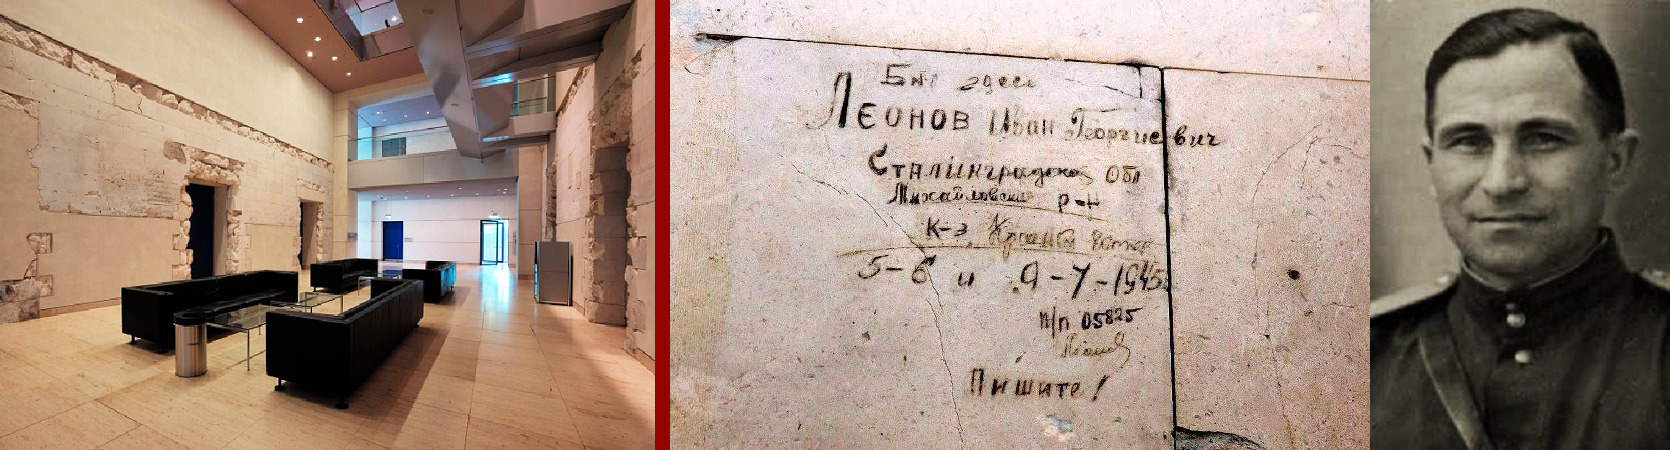 Был здесь
Леонов Иван Георгиевич
Сталинградская обл
Михайловский р-н
к-з
5-6 и 9-7-1945
п/п 05825
Пишите!